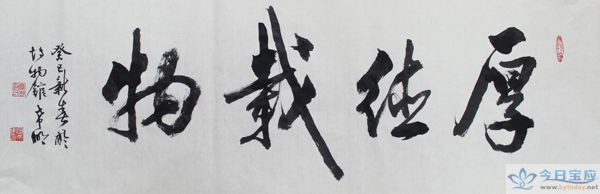 厚德载物
癸巳新春於
博物馆
今日宝应
www.bytoday.net